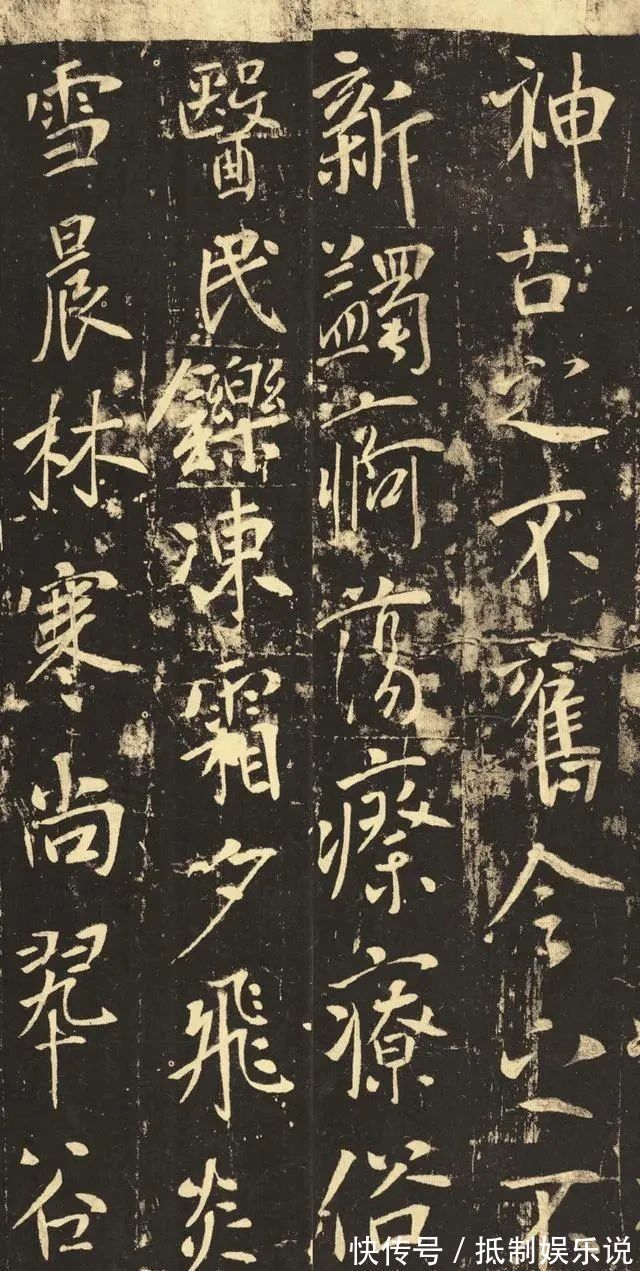 神古之不舊今之不
新蠲痾蕩瘵療俗
醫民鑠凍霜夕飛炎
雪晨林寒尚翠谷
快传号 / 抵制娱乐说